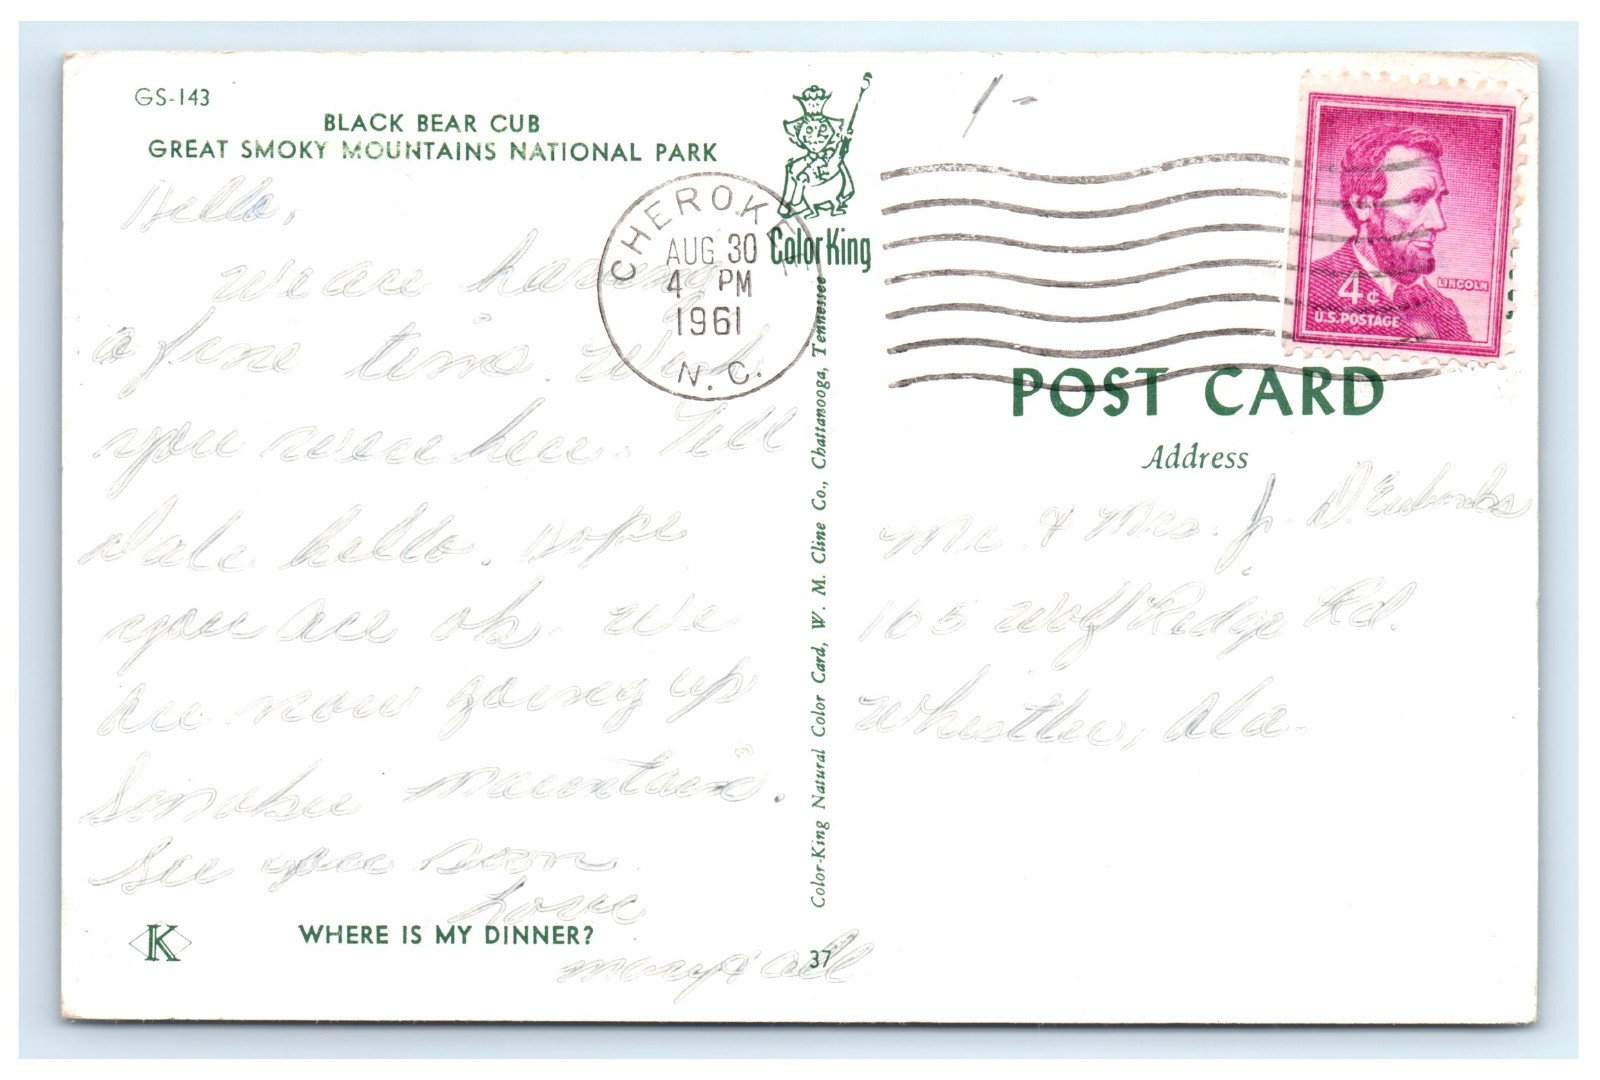 GS-143
BLACK BEAR CUB
GREAT SMOKY MOUNTAINS NATIONAL PARK
Hello,
We are having
a fine time. Wish
you were here. Tell
Dale hello. Hope
you are ok. We
are now going up
mountain.
See you soon
Love
Mary & all
K
WHERE IS MY DINNER?
37
Color-King Natural Color Card, W. M. Cline Co., Chattanooga, Tennessee
Color King
CHEROKEE
AUG 30
4 PM
1961
N. C.
1-
4¢
LINCOLN
U.S. POSTAGE
POST CARD
Address
Mr. & Mrs. J. D. Eubanks
105 Wolf Ridge Rd.
Whistler, Ala.